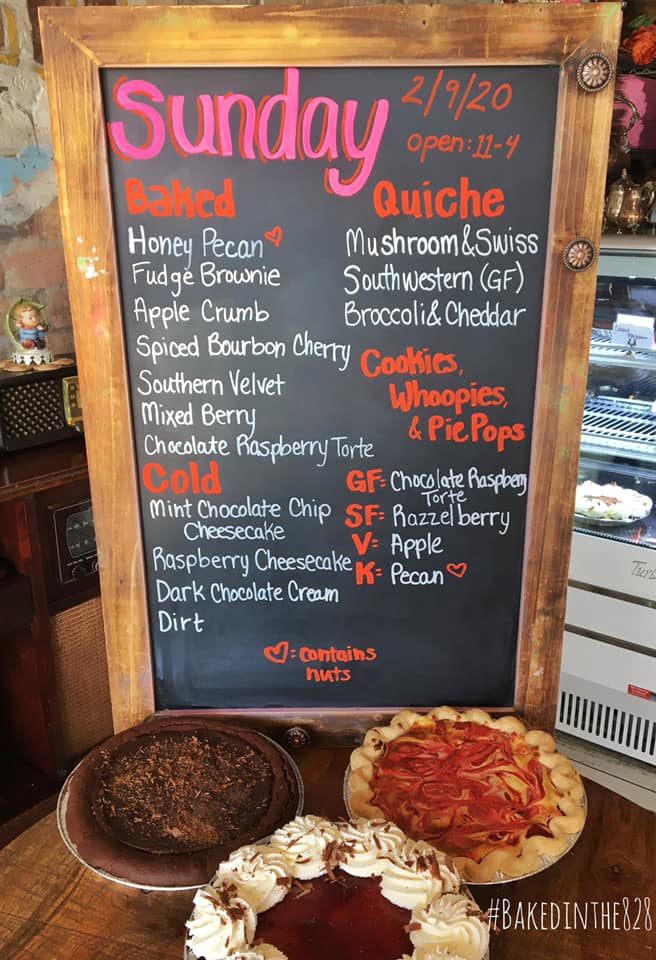 Sunday
2/9/20
open: 11-4
Baked
Honey Pecan ♡
Fudge Brownie
Apple Crumb
Spiced Bourbon Cherry
Southern Velvet
Mixed Berry
Chocolate Raspberry Torte
Cold
Mint Chocolate Chip
Cheesecake
Raspberry Cheesecake
Dark Chocolate Cream
Dirt
Quiche
Mushroom & Swiss
Southwestern (GF)
Broccoli & Cheddar
Cookies,
Whoopies,
& Pie Pops
GF= Chocolate Raspberry
Torte
SF= Razzelberry
V= Apple
K= Pecan ♡
♡= contains
nuts
#BAKEDINTHE828